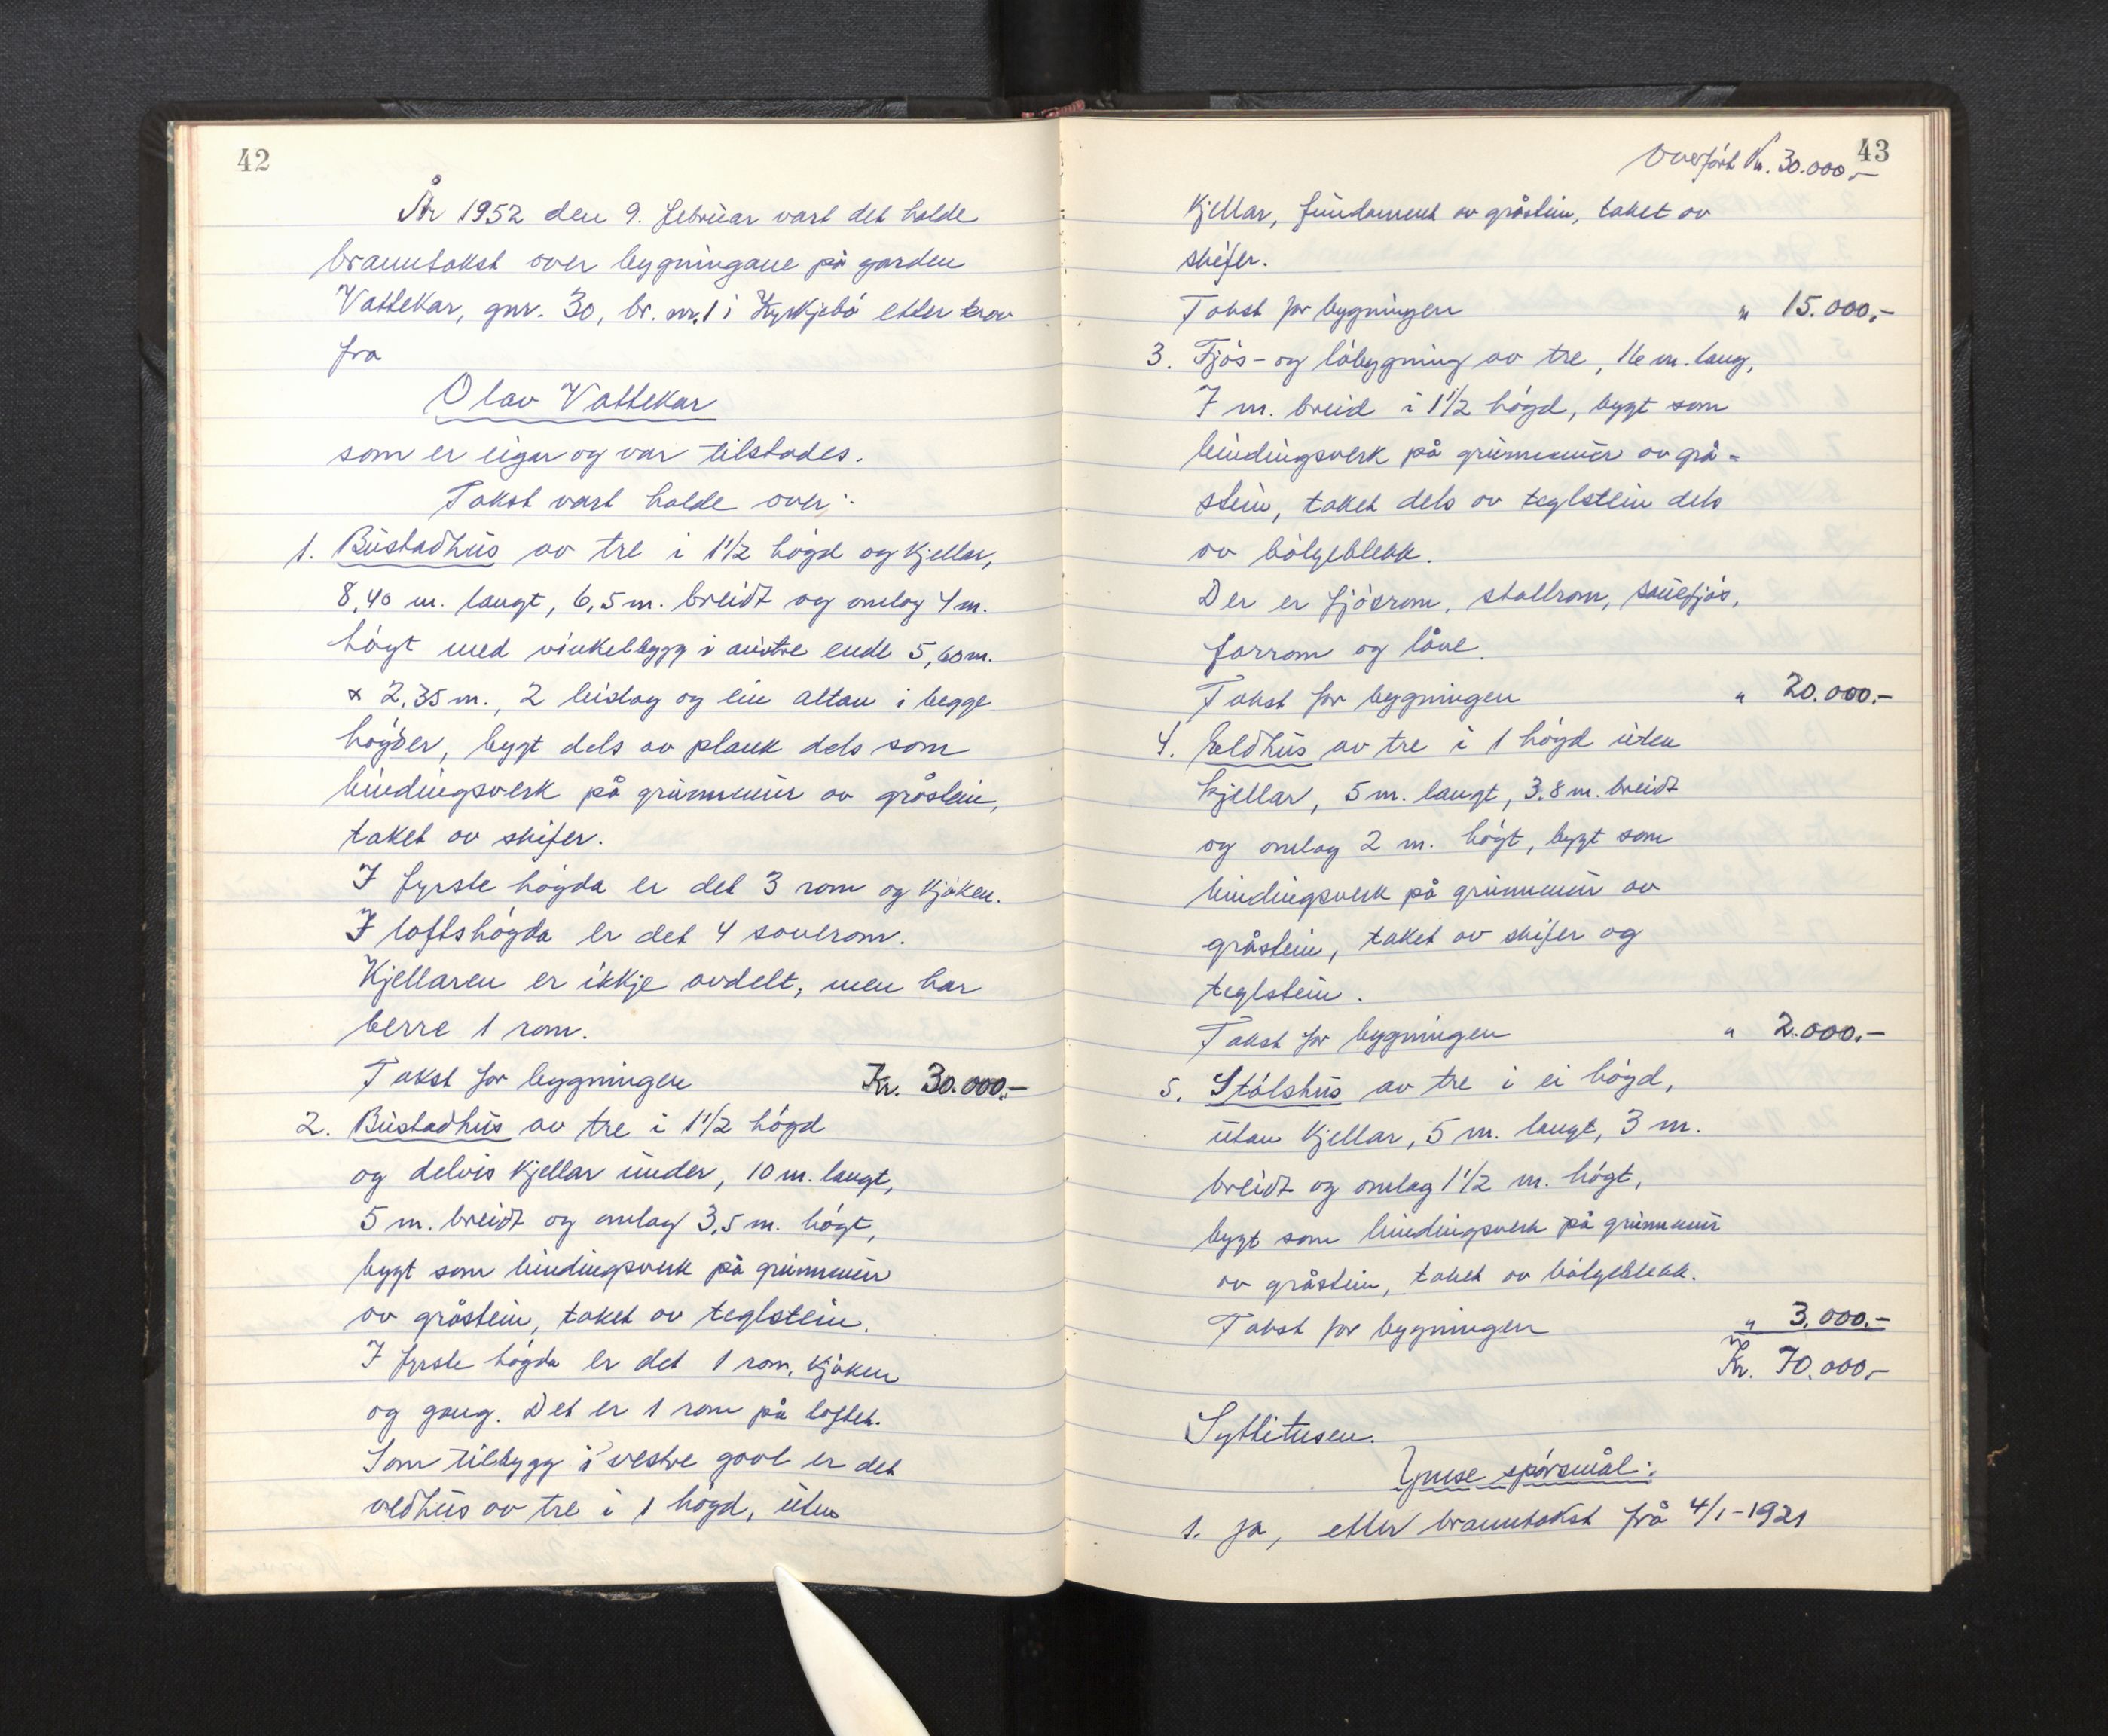 42
År 1952 den 9. februar vart det halde
branntakst over bygningane på garden
Vattekar, gnr. 30, br. nr. 1 i Kyrkjebø etter krav
fra
Olav Vattekar
som er eigar og var tilstades.
Takst vart halde over:
1. Bustadhus av tre i 1 1/2 høgd og kjellar,
8,40 m. langt, 6,5 m. breidt og omlag 4 m.
høgt med vinkelbygg i austre ende 5,60 m.
x 2,35 m., 2 bislag og ein altan i begge
høgder, bygt dels av plank dels som
bindingsverk på grunnmur av gråstein,
taket av skifer.
I fyrste høgda er det 3 rom og kjøken.
I loftshøgda er det 4 soverom.
Kjellaren er ikkje avdelt, men har
berre 1 rom.
Takst for bygningen Kr. 30.000,-
2. Bustadhus av tre i 1 1/2 høgd
og delvis kjellar under, 10 m. langt,
5 m. breidt og omlag 3,5 m. høgt,
bygt som bindingsverk på grunnmur
av gråstein, taket av teglstein.
I fyrste høgda er det 1 rom, kjøken
og gang. Det er 1 rom på loftet.
Som tilbygg i vestre gavl er det
vedhus av tre i 1 høgd, uten
43
Overført Kr. 30.000,-
kjellar, fundament av gråstein, taket av
skifer.
Takst for bygningen " 15.000,-
3. Fjøs- og løbygning av tre, 16 m. lang,
7 m. breid i 1 1/2 høgd, bygt som
bindingsverk på grunnmur av grå-
stein, taket dels av teglstein dels
av bølgeblekk.
Der er fjøsrom, stallrom, sauefjøs,
forrom og låve.
Takst for bygningen " 20.000,-
4. Eldhus av tre i 1 høgd uten
kjellar, 5 m. langt, 3.8 m. breidt
og omlag 2 m. høgt, bygt som
bindingsverk på grunnmur av
gråstein, taket av skifer og
teglstein.
Takst for bygningen " 2.000,-
5. Stølshus av tre i ei høgd,
utan kjellar, 5 m. langt, 3 m.
breidt og omlag 1 1/2 m. høgt,
bygt som bindingsverk på grunnmur
av gråstein, taket av bølgeblekk.
Takst for bygningen " 3.000.-
Kr. 70.000,-
Syttitusen.
Ymse spørsmål:
1. Ja, etter branntakst frå 4/1-1921